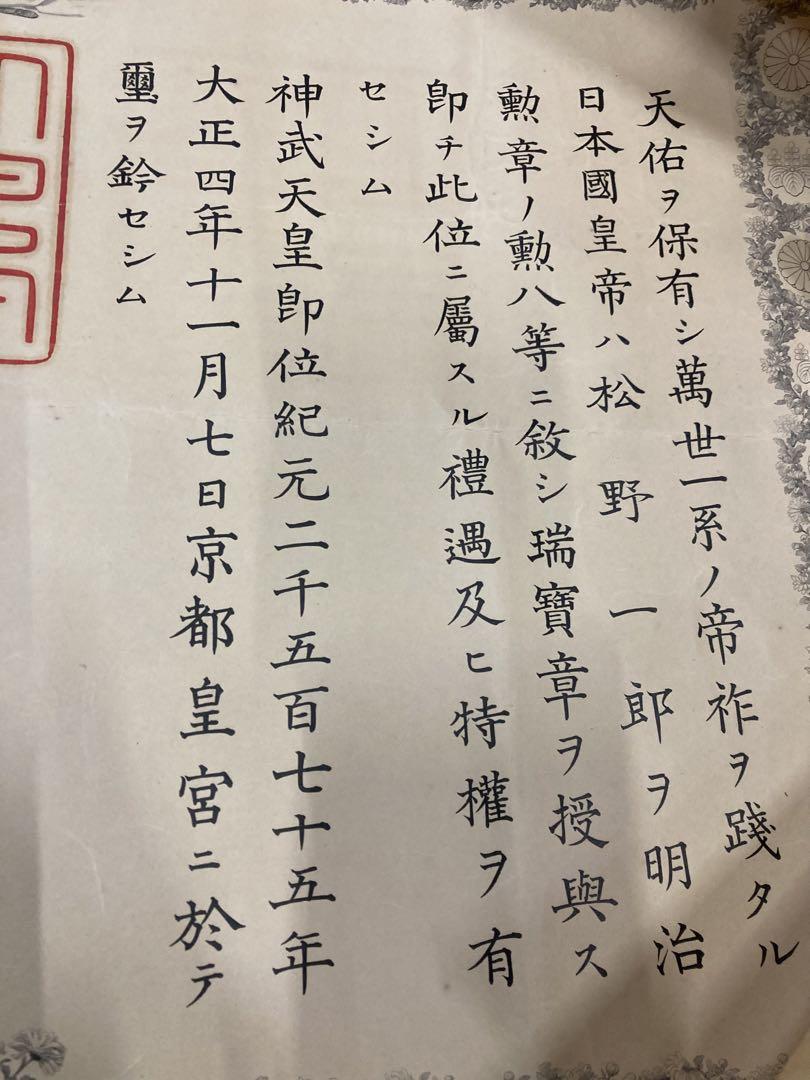 天佑ヲ保有シ萬世一系ノ帝祚ヲ踐タル
日本國皇帝ハ松野一郎ヲ明治
勳章ノ勳八等ニ敘シ瑞寶章ヲ授與ス
卽チ此位ニ屬スル禮遇及ヒ特權ヲ有
セシム
神武天皇卽位紀元二千五百七十五年
大正四年十一月七日京都皇宮ニ於テ
璽ヲ鈐セシム